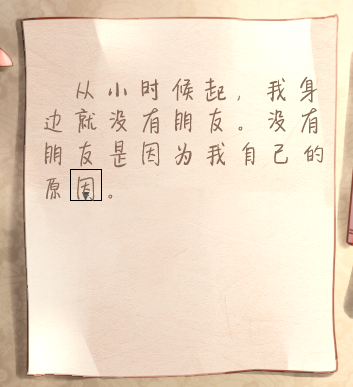 从小时候起，我身
边就没有朋友。没有
朋友是因为我自己的
原因。